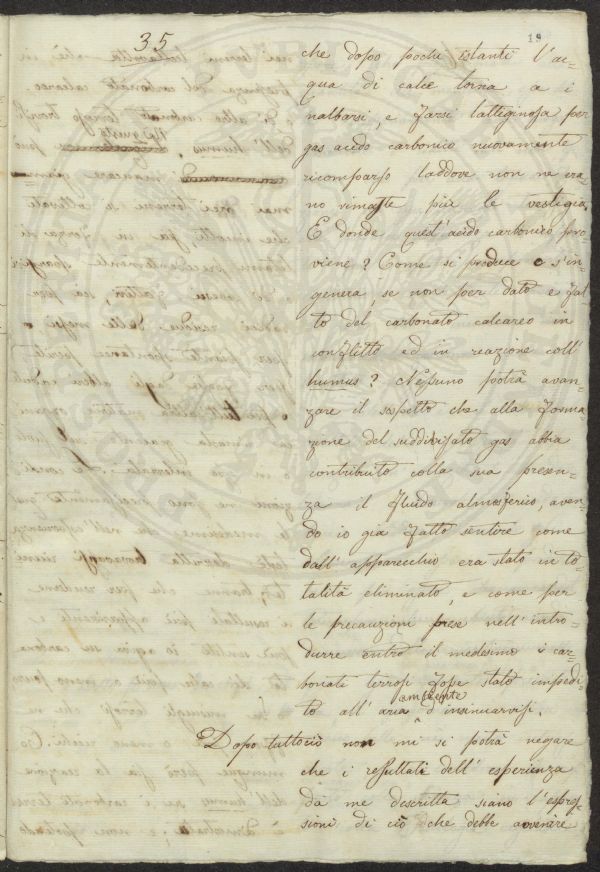 35
19
che dopo pochi istanti l'ac=
qua di calce torna a i
nalbarsi, e farsi lattiginosa per
gas acido carbonico nuovamente
ricomparso laddove non ne era=
no rimaste più le vestigia
E donde quest'acido carbonico pro
viene? Come si produce e s'in=
genera, se non per dato e fat
to del carbonato calcareo in
conflitto ed in reazione coll'
humus? Nessuno potrà avan=
zare il sospetto che alla forma=
zione del suddivisato gas abbia
contribuito colla sua presen=
za il fluido atmosferico, aven=
do io già fatto sentore come
dall'apparecchio era stato in to=
talità eliminato, e come per
le precauzioni prese nell'intro=
durre entro il medesimo i car=
bonati terrosi fosse stato impedi=
to all'aria ambiente d'insinuarvisi.
Dopo tuttociò non mi si potrà negare
che i resultati dell'esperienza
da me descritta siano l'espres=
sioni di ciò che debbe avvenire